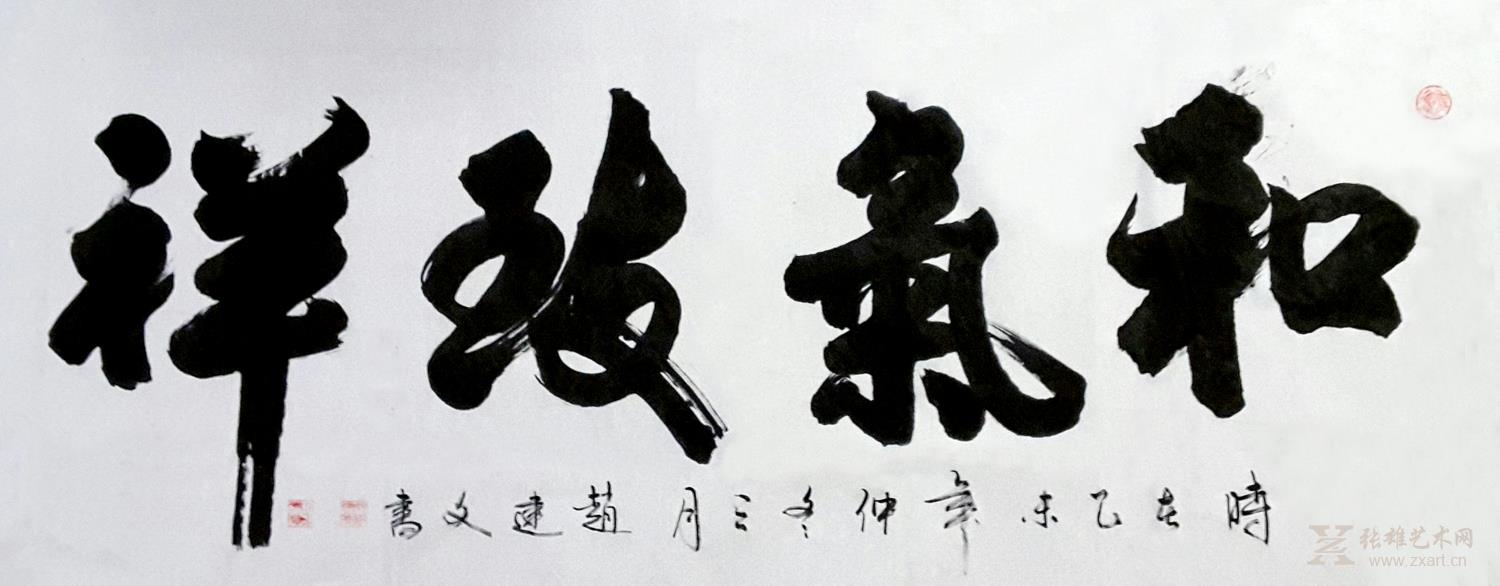 和氣致祥
時在乙未年仲冬三月趙建文書
张雄艺术网
www.zxart.cn